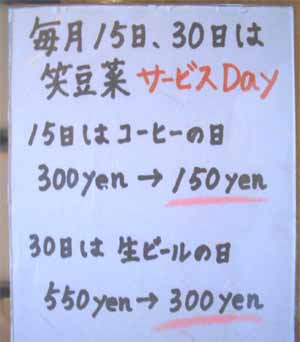 毎月15日、30日は
笑豆菜 サービスDay
15日はコーヒーの日
300yen→150yen
30日は 生ビールの日
550yen→300yen